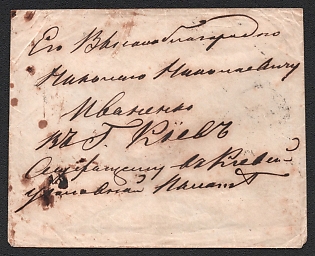 Его Высокоблагородію
Николаю Николаевичу
Иваненко
въ Г. Кіевъ
въ Кіевской
уголовной Палатѣ